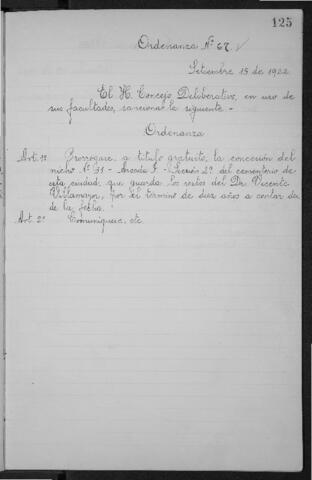 125
Ordenanza Nº 67
Setiembre 15 de 1922
El H. Concejo Deliberativo, en uso de
sus facultades, sanciona la siguiente -
Ordenanza
Art. 1º Prorrogase, a titulo gratuito, la concesión del
nicho Nº 31 - - Sección 2ª del cementerio de
esta ciudad, que guarda los restos del Dr. Vicente
Villamayor, por el termino de diez años a contar de
de la fecha.
Art. 2º Comuniquese, etc.